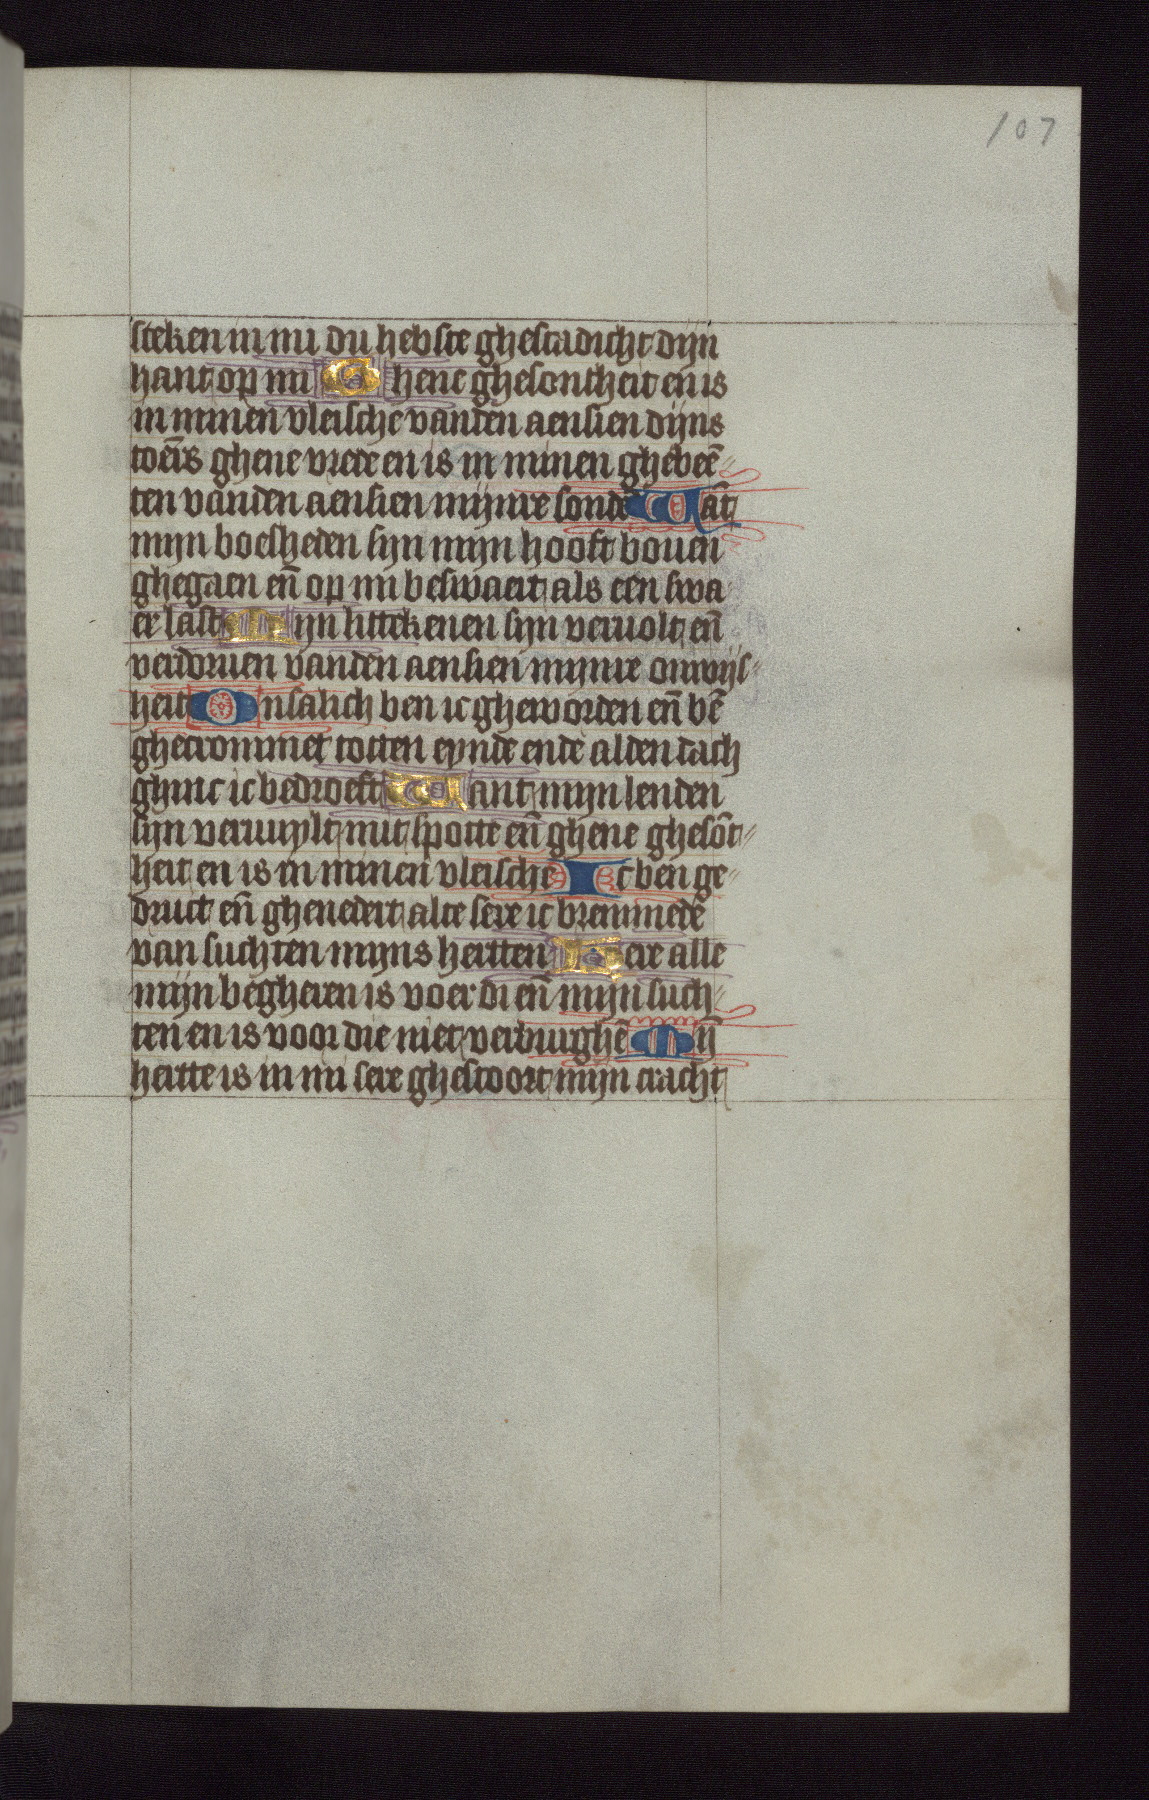 107
steken in mi du hebste ghestadicht dijn
hant op mi Ghene ghesontheit en is
in minen vleische vanden aensien dijns
toērs ghene vrede en is in minen ghebeē
ten vanden aensien mijnre sondē Wāt
mijn boesheden sijn mijn hooft bouen
ghegaen eñ op mi beswaert als een swa
er last Mijn littekenen sijn veruolt eñ
verdoruen vanden aensien mijnre onwijs
heit Onsalich ben ic gheworden eñ bē
ghecrommet totten eynde ende alden dach
ghinc ic bedroeft Want mijn lenden
sijn veruuylt mit spotte eñ ghene ghesōt
heit en is in minen vleische Ic ben ge
druct eñ ghenedert alte sere ic bremmede
van suchten mijns hertten Here alle
mijn begheren is voer di eñ mijn such
ten en is voor die niet verburghē Mij̄
hertte is in mi sere ghestoort mijn cracht